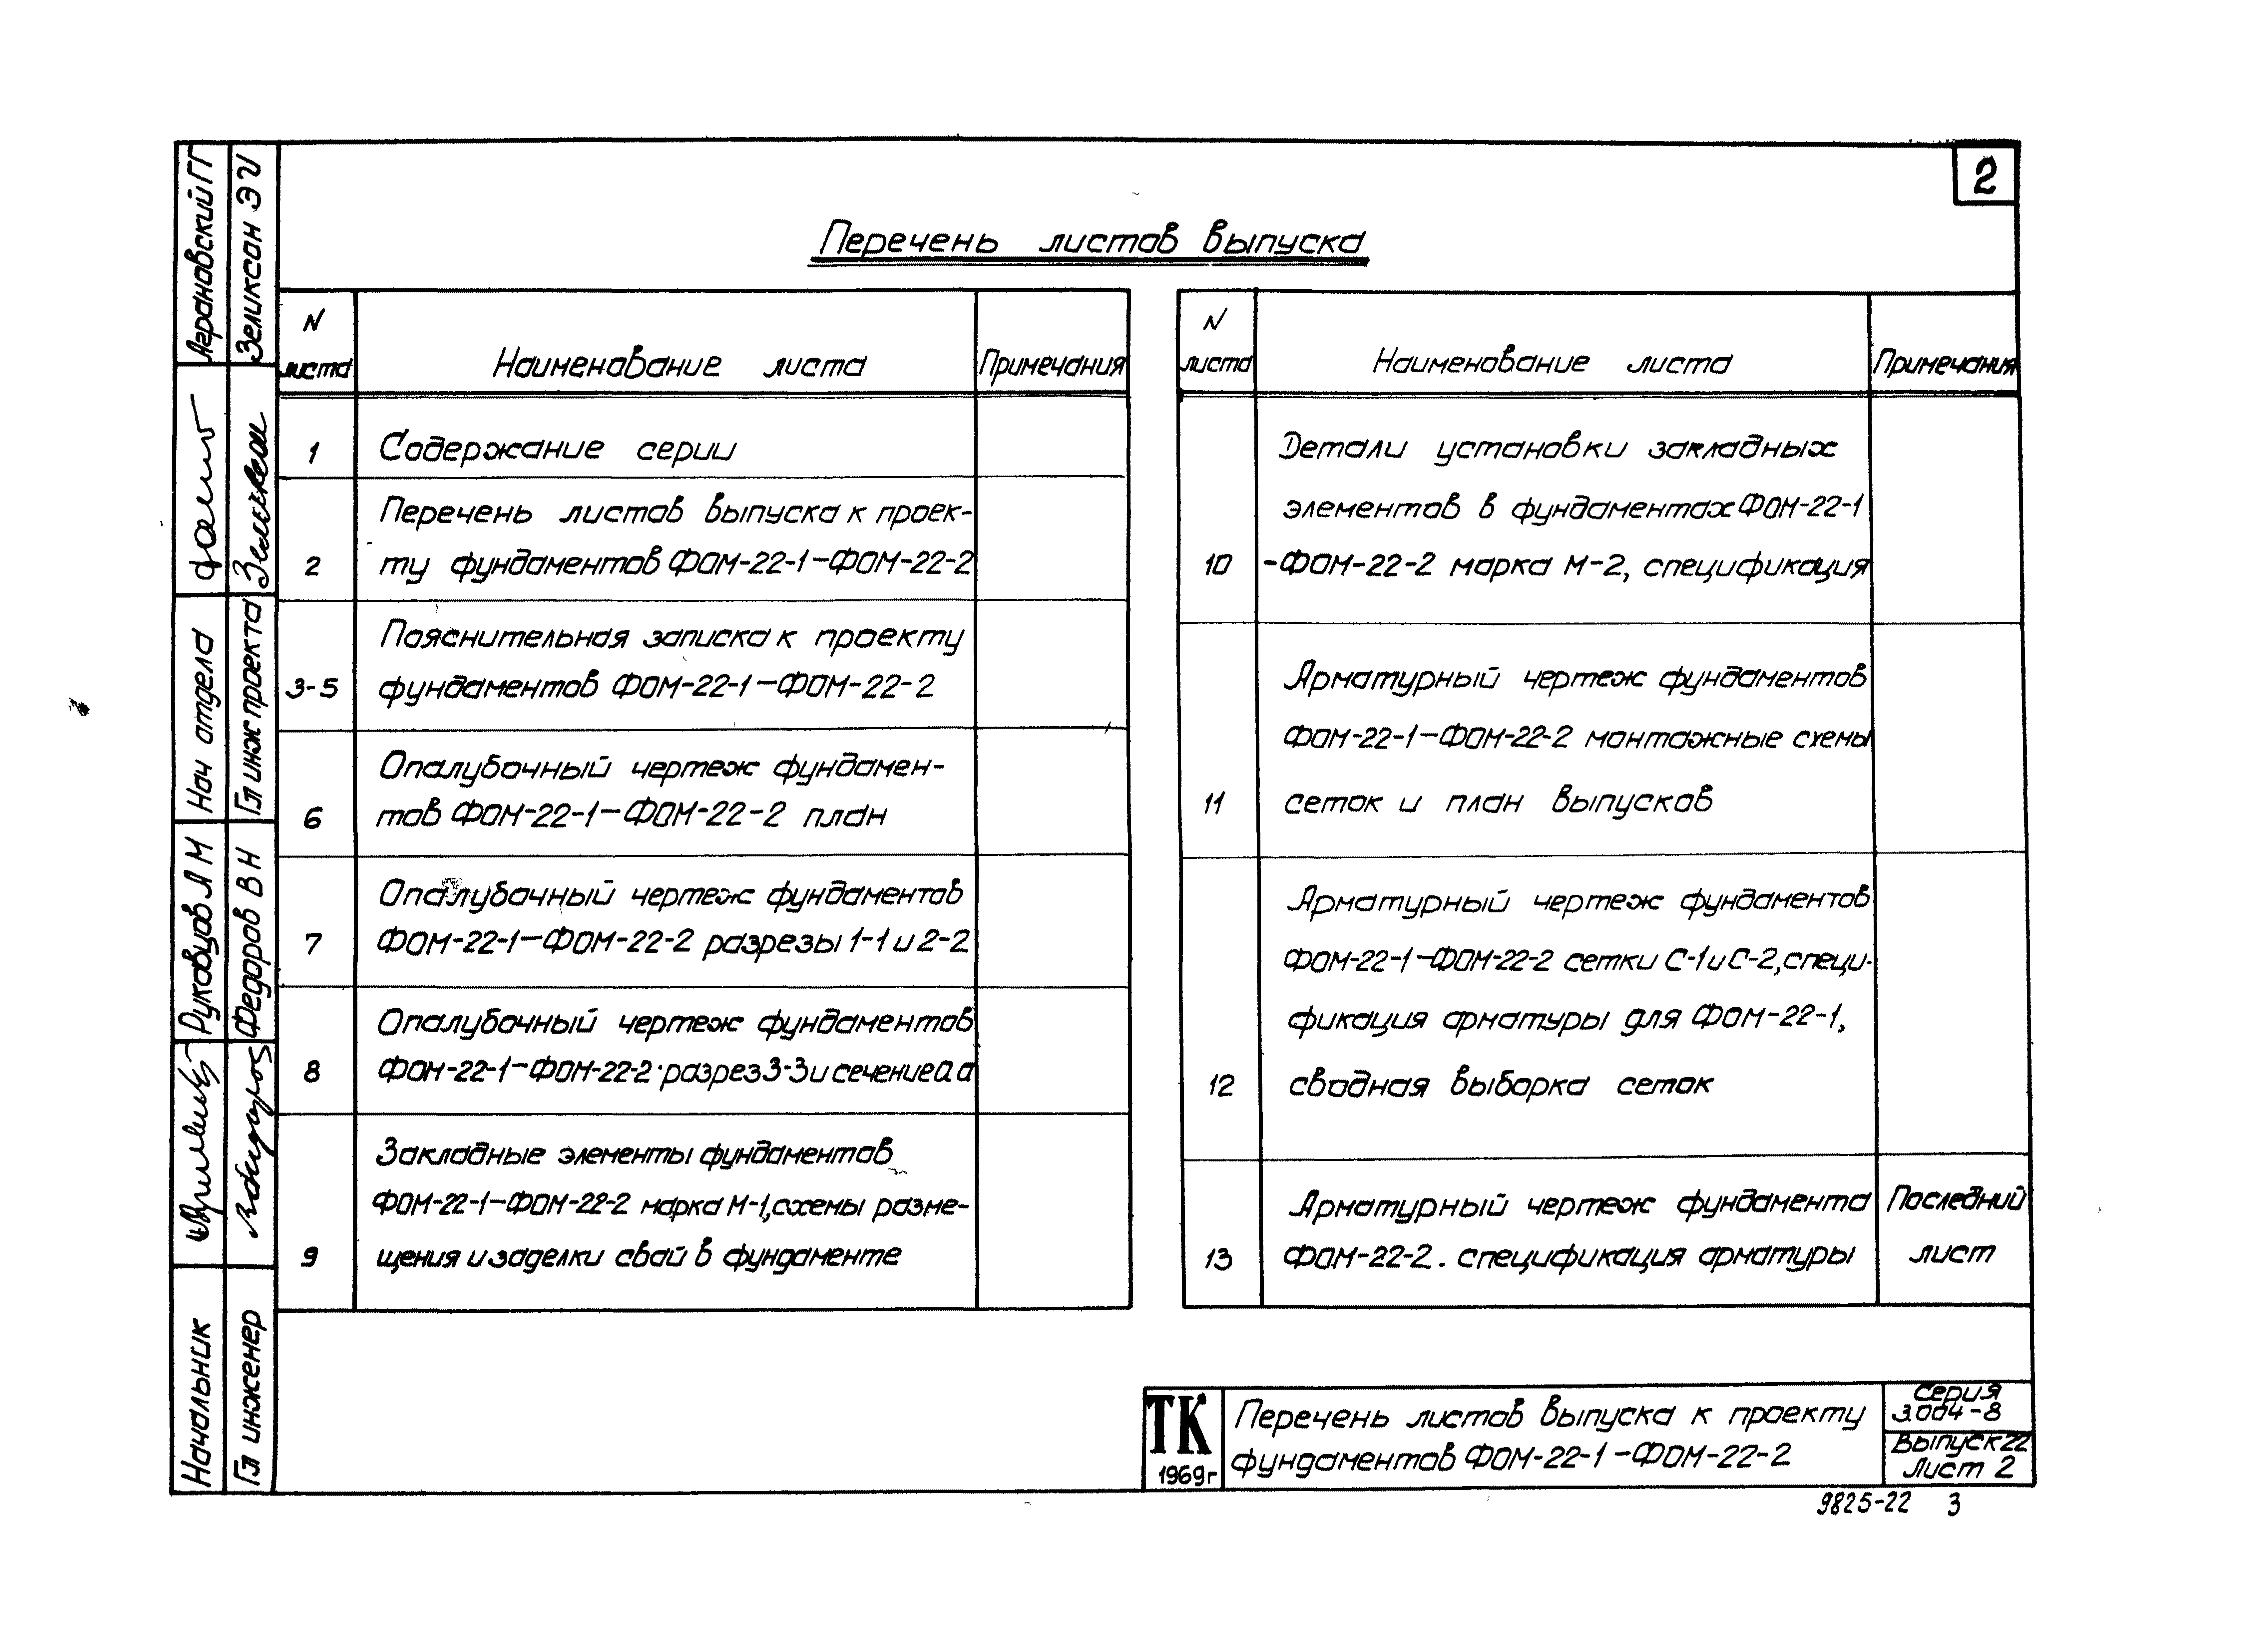 2
Перечень листов выпуска
N листа
Наименование листа
Примечания
1
Содержание серии
Перечень листов выпуска к проек-
2
ту фундаментов ФОМ-22-1-ФОМ-22-2
Пояснительная записка к проекту
3-5
фундаментов ФОМ-22-1-ФОМ-22-2
Опалубочный чертеж фундамен-
6
тов ФОМ-22-1-ФОМ-22-2 план
Опалубочный чертеж фундаментов
7
ФОМ-22-1-ФОМ-22-2 разрезы 1-1 и 2-2
Опалубочный чертеж фундаментов
8
ФОМ-22-1-ФОМ-22-2 разрез 3-3 и сечение а а
Закладные элементы фундаментов
ФОМ-22-1-ФОМ-22-2 марка М-1, схемы разме-
9
щения и заделки свай в фундаменте
N листа
Наименование листа
Примечания
Детали установки закладных
элементов в фундаментах ФОМ-22-1
10
-ФОМ-22-2 марка М-2, спецификация
Арматурный чертеж фундаментов
ФОМ-22-1-ФОМ-22-2 монтажные схемы
11
сеток и план выпусков
Арматурный чертеж фундаментов
ФОМ-22-1-ФОМ-22-2 сетки С-1 и С-2, специ-
фикация арматуры для ФОМ-22-1,
12
сводная выборка сеток
Арматурный чертеж фундамента
Последний
13
ФОМ-22-2. спецификация арматуры
лист
ТК
1969г
Перечень листов выпуска к проекту
фундаментов ФОМ-22-1-ФОМ-22-2
Серия
3.004-8
Выпуск 22
Лист 2
9825-22 3
Начальник
Руковцов А М
Нач отдела
Аграновский Г Г
Гл инженер
Федоров В Н
Гл инж проекта
Зеликсон Э И